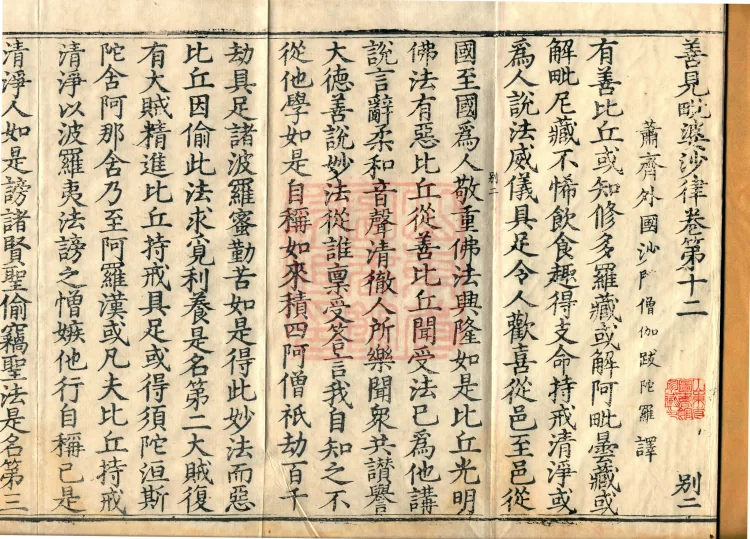 善見毗婆沙律卷第十二
別二
蕭齊外國沙門僧伽跋陀羅譯
有善比丘或知修多羅藏或解阿毗曇藏或
解毗尼藏不悕飲食趣得支命持戒清淨或
爲人說法威儀具足令人歡喜從邑至邑從
別二
國至國爲人敬重佛法興隆如是比丘光明
佛法有惡比丘從善比丘聞受法已爲他講
說言辭柔和音聲清徹人所樂聞衆共讃譽
大德善說妙法從誰稟受答言我自知之不
從他學如是自稱如來積四阿僧祇劫百千
劫具足諸波羅蜜勤苦如是得此妙法而惡
比丘因偷此法求覓利養是名第二大賊復
有大賊精進比丘持戒具足或得須陀洹斯
陀含阿那含乃至阿羅漢或凡夫比丘持戒
清淨以波羅夷法謗之憎嫉他行自稱己是
清淨人如是謗諸賢聖偷竊聖法是名第三